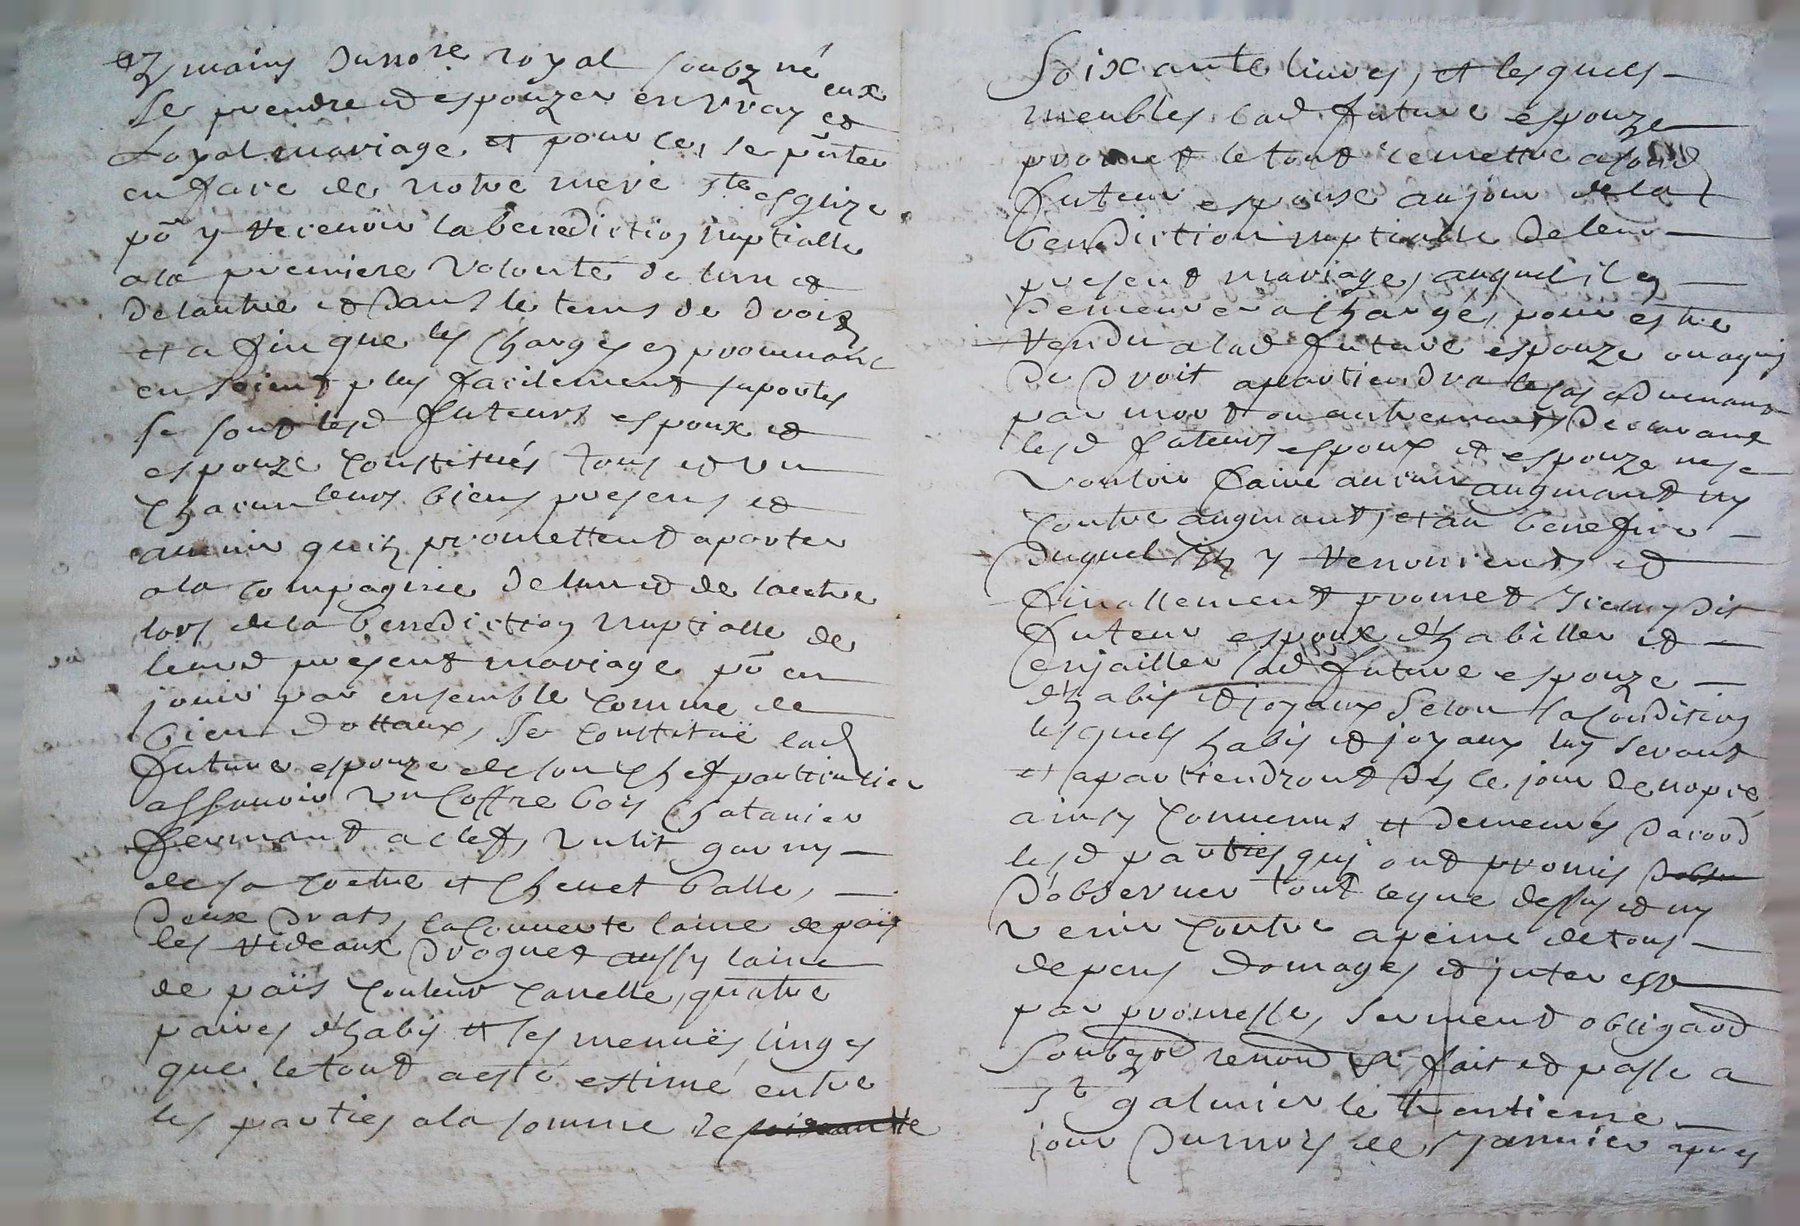 ez mains du no.re royal soubz né eux
se prendre et espouzer en vray et
Loyal mariage, et pour ce, se pñter
en face de notre mere ste esglize
po y recevoir la benediction nuptialle
a la premiere volonté de lun et
de lautre et dans le tems de droit
et a fin que les charges en provenant
en soient plus facilement suportés
se sont lesd futeurs espoux et
espouze constitués tous et un
chacun leurs biens presens et
avenir quilz promettent aporter
a la compagnie de lun et de lautre
lors de la benediction nuptialle de
leurd present mariage po en
jouir par ensemble comme de
bien dottaux, se constitue lad
future espouze de son chef particulier
assavoir un coffre bois chatanier
fermant a clef, un lit garny
de sa coetre et chevet balle,
deux draps, la couverte laine de païs
les rideaux droguet aussy laine
de païs couleur canelle, quatre
paires d'habis et les menues linges
que le tout a esté estimé entre
les parties a la somme de soixante
Soixante livres, et lesquels
meubles lad future espouze
promet le tout remettre a sond
futeur espoux au jour de la
benediction nuptialle de leur
present mariage, auquel il en
demeurera chargé, pour estre
rendu a lad future espouze ou a quy
de droit apartiendra le cas advenant
par mort ou autrement, declarant
lesd futeurs espoux et espouze ne se
vouloir faire aucun augmant ny
contre augmant, et au benefice
duquel ilz y renoncient et
finallement promet icelluy dit
futeur espoux d'habiller et
enjailler lad future espouze
d'habis et joyaux selon sa condition
lesquels habis et joyaux luy seront
et apartiendront dès le jour de nopce
ainsy convenus et demeurés dacord
lesd parties quj ont promis
d'observer tout ce que dessus et ny
venir contre a peine de tous
depens domages et interest
par promesse, serment obligaõn
soubzõn renonõn &c fait et passé a
St galmier le trentieme
jour du mois de Janvier apres